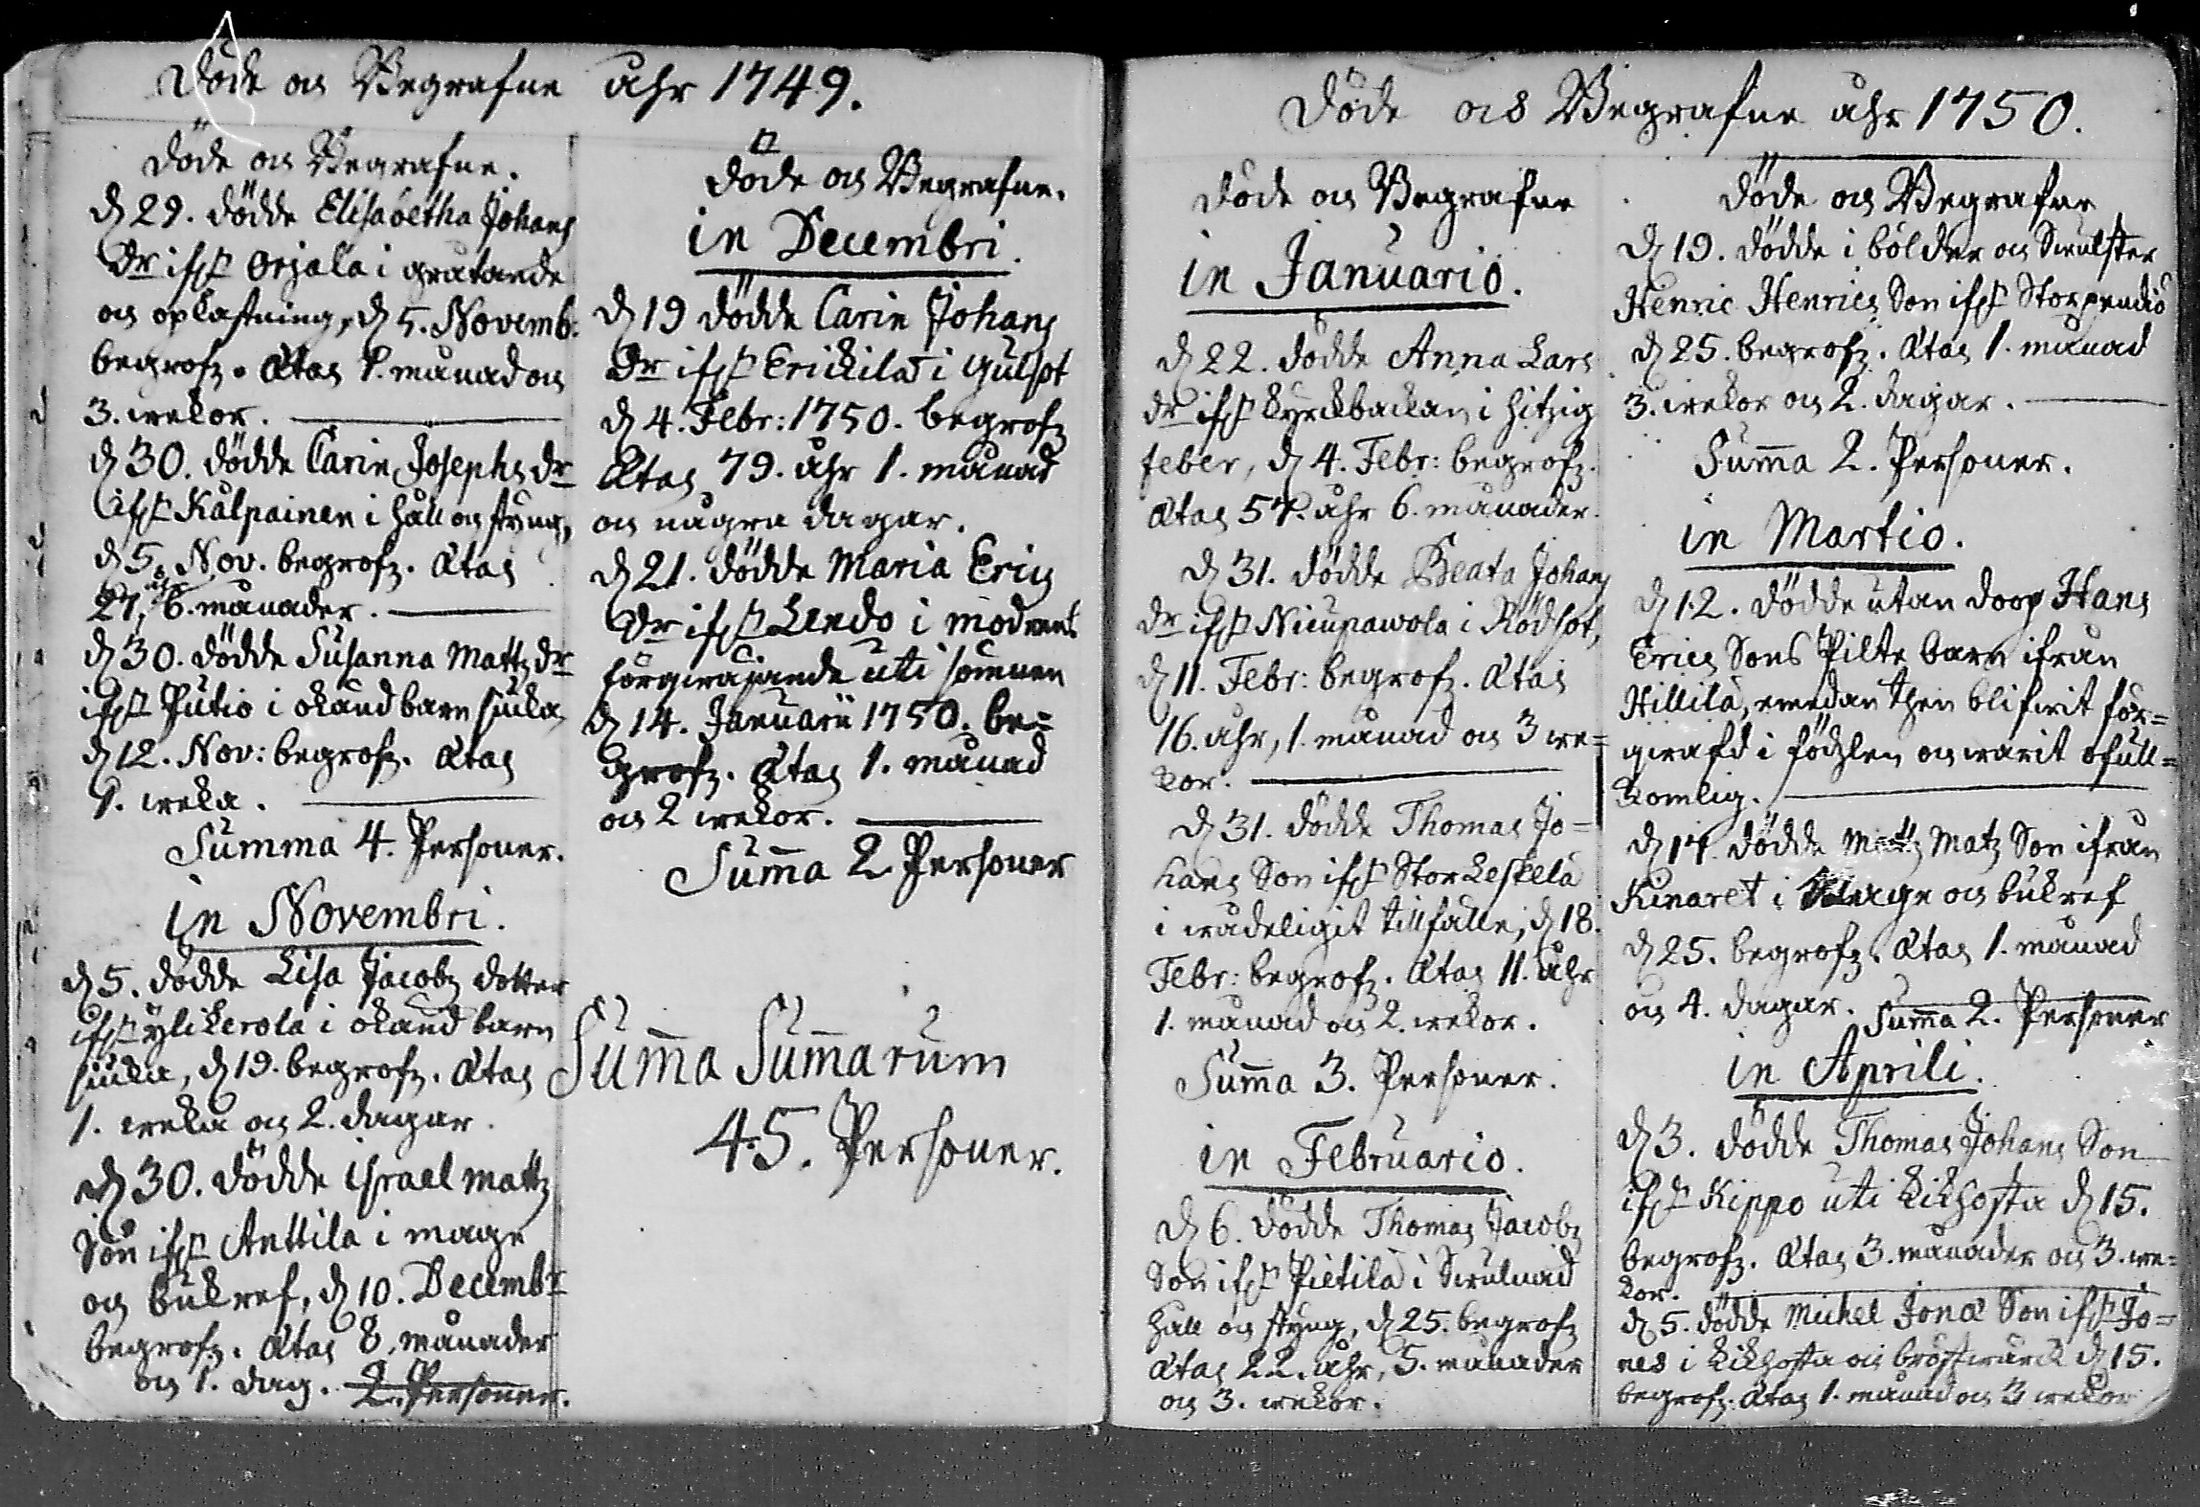 Döde och Begrafne åhr 1749.
Döde och Begrafne.
d 29. dödde Elisabetha Johans
Dr ifrå Orjala i gråtande
och opkastning, d 5. Novemb:
begrofz. Ætas 1. månad och
3. wekor.
d 30. dödde Carin Josephs dr
ifrå Kälpäinen i håll och styng,
d 5. Nov. begrofz. Ætas
27, åhr 6. månader.
d 30. dödde Susanna Mattz dr
ifrå Putio i okänd barn siuka
d 12. Nov: begrofz. Ætas
1. weka.
Summa 4. Personer.
in Novembri.
d 5. dödde Lisa Jacobz dotter
ifrå Ylikerola i okänd barn
siuka, d 19. begrofz. Ætas
1. weka och 2. dagar.
d 30. dödde Israel Mattz
Son ifrå Anttila i mage
och bukref, d 10. Decembr
begrofz. Ætas 8. månader
och 1. dag. 2. Personer.
Döde och Begrafne.
in Decembri.
d 19 dödde Carin Johans
Dr ifrå Erickilä i gulsot
d 4. Febr: 1750. begrofz
Ætas 79. åhr 1. månad
och några dagar.
d 21. dödde Maria Erics
Dr ifrå Lendo i modrens
förqwäfjande uti sömnen
d 14. Januarii 1750. be=
grofz. Ætas 1. månad
och 2 wekor.
Suma 2 Personer
Suma Sumarum
45. Personer.
Döde och Begrafne åhr 1750.
Döde och Begrafne
in Januario.
d 22. dödde Anna Lars
dr ifrå Kyrckbackan i hitzig
feber, d 4. Febr: begrofz.
Ætas 57. åhr 6. månader.
d 31. dödde Beata Johans
dr ifrå Nicupawola i Rödsot,
d 11. Febr: begrofz. Ætas
16. åhr, 1. månad och 3 we=
kor.
d 31. dödde Thomas Jo=
hans Son ifrå Stor Leskelä
i wådeligit tillfälle, d 18.
Febr: begrofz. Ætas 11. åhr
1. månad och 2. wekor.
Suma 3. Personer.
in Februario.
d 6. dödde Thomas Jacobz
Son ifrå Pietilä i Swulnad
håll och styng, d 25. begrofz
Ætas 22. åhr, 5. månader
och 3. wekor.
Döde och Begrafne
d 19. dödde i bölder och Swulster
Henric Henrics Son ifrå Storpendio
d 25. begrofz. Ætas 1. månad
3. wekor och 2. dagar.
Suma 2. Personer.
in Martio.
d 12. dödde utan doop Hans
Erics Sons Pilte barn ifrån
Hillilä, emedan then blifwit för=
qwafd i födzlen och warit ofull=
komlig.
d 17. dödde Mattz Matz Son ifrån
Kinaret i Mage och bukref
d 25. begrofz. Ætas 1. månad
och 4. dagar. Suma 2. Personer
in Aprili.
d 3. dödde Thomas Johans Son
ifrå Kippo uti kikhosta d 15.
begrofz. Ætas 3. månader och 3. we=
kor.
d 5. dödde Michel Jonæ Son ifrå Jo=
nes i kikhosta och bröstwärck d 15.
begrofz. Ætas 1. månad och 3 wekor